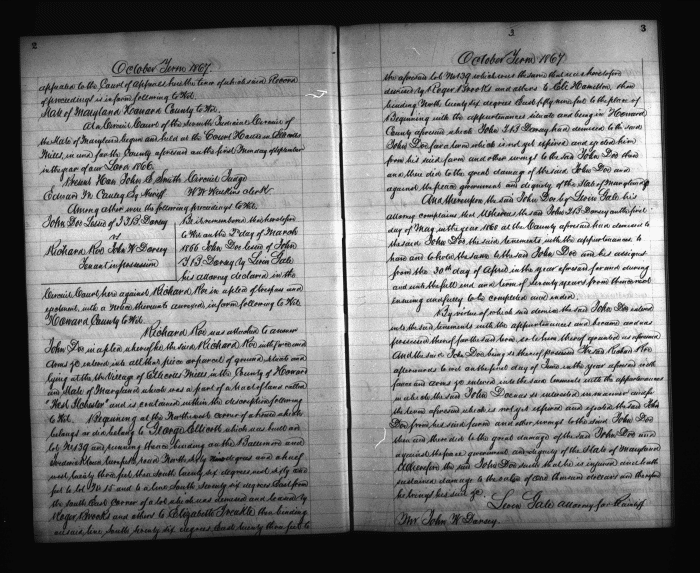 2
October Term 1867.
appealed to the Court of Appeals
of proceedings is in form following to Wit
State of Maryland Howard County to Wit
At a Circuit Court of the Seventh Judicial Circuit of
the State of Maryland begun and held at the Court House in Ellicotts
Mills, in and for the County aforesaid on the first Monday of September
in the year of our Lord 1866.
Present Hon John S Smith Circuit Judge
Edwin Sheriff W W Watkins clerk
Among other were the following proceedings to Wit
John Doe Lessee of J T B Dorsey
vs
Richard Roe John W Dorsey
Tenant in possession
Be it remembered that heretofore
to Wit on the 2d day of March
1866 John Doe lessee of John
T B Dorsey by Leon Gale
his attorney declared in the
Circuit Court here against Richard Roe in a plea of trespass and
ejectment, with a notice thereunto annexed in form following to Wit
Howard County to Wit
Richard Roe was attached to answer
John Doe in a plea wherefore the said Richard Roe with force and
arms &c entered into all that piece or parcel of ground situate and
lying at the Village of Ellicotts Mills in the County of Howard
and State of Maryland which was a part of a tract of land called
"West Ilchester" and is contained within the description following
to Wit. Beginning at the Northwest corner of a house which
belongs or did belong to George Ellicott which was built on
lot No 39 and running thence binding on the Baltimore and
Frederick Town turnpike road North sixty degrees and a half
west, thirty feet, then South twenty six degrees west sixty one
feet to lot No 15 and to a line South seventy six degrees East from
the South East corner of a lot which was demised and leased by
Roger Brooks and others to Elizabeth Treakle then binding
on said line South seventy six degrees East twenty three feet to
3
3
October Term 1867
the aforesaid lot No 39 which was the same that was heretofore
demised by Roger Brooks and others to Eli Hamilton, then
binding North twenty six degrees East fifty nine feet to the place of
Beginning with the appurtenances situate and being in Howard
County aforesaid which John T B Dorsey had demised to the said
John Doe for a term which is not yet expired and ejected him
from his said farm and other wrongs to the said John Doe then
and there did to the great damage of the said John Doe and
against the peace government and dignity of the State of Maryland
And thereupon the said John Doe by Leon Gale his
attorney complains that Whereas the said John T B Dorsey on the first
day of May in the year 1861 at the County aforesaid had demised to
the said John Doe the said tenements with the appurtenances to
have and to hold the same to the said John Doe and his assigns
from the 30th day of April in the year aforesaid for and during
and until the full end and term of seventy years from thence next
ensuing and fully to be completed and ended
By virtue of which said demise the said John Doe entered
into the said tenements with the appurtenances and became and was
possessed thereof for the said term, so to him thereof granted as aforesaid
And the said John Doe being so thereof possessed the said Richard Roe
afterwards to wit on the first day of June in the year aforesaid with
force and arms &c entered into the said tenements with the appurtenances
in which the said John Doe was so interested in manner and for
the term aforesaid which is not yet expired and ejected the said John
Doe from his said farm and other wrongs to the said John Doe
then and there did to the great damage of the said John Doe and
against the peace government and dignity of the State of Maryland
Wherefore the said John Doe saith that he is injured and hath
sustained damage to the value of one thousand dollars and therefore
he brings his suit &c.
Leon Gale attorney for Plaintiff
Mr John W Dorsey.